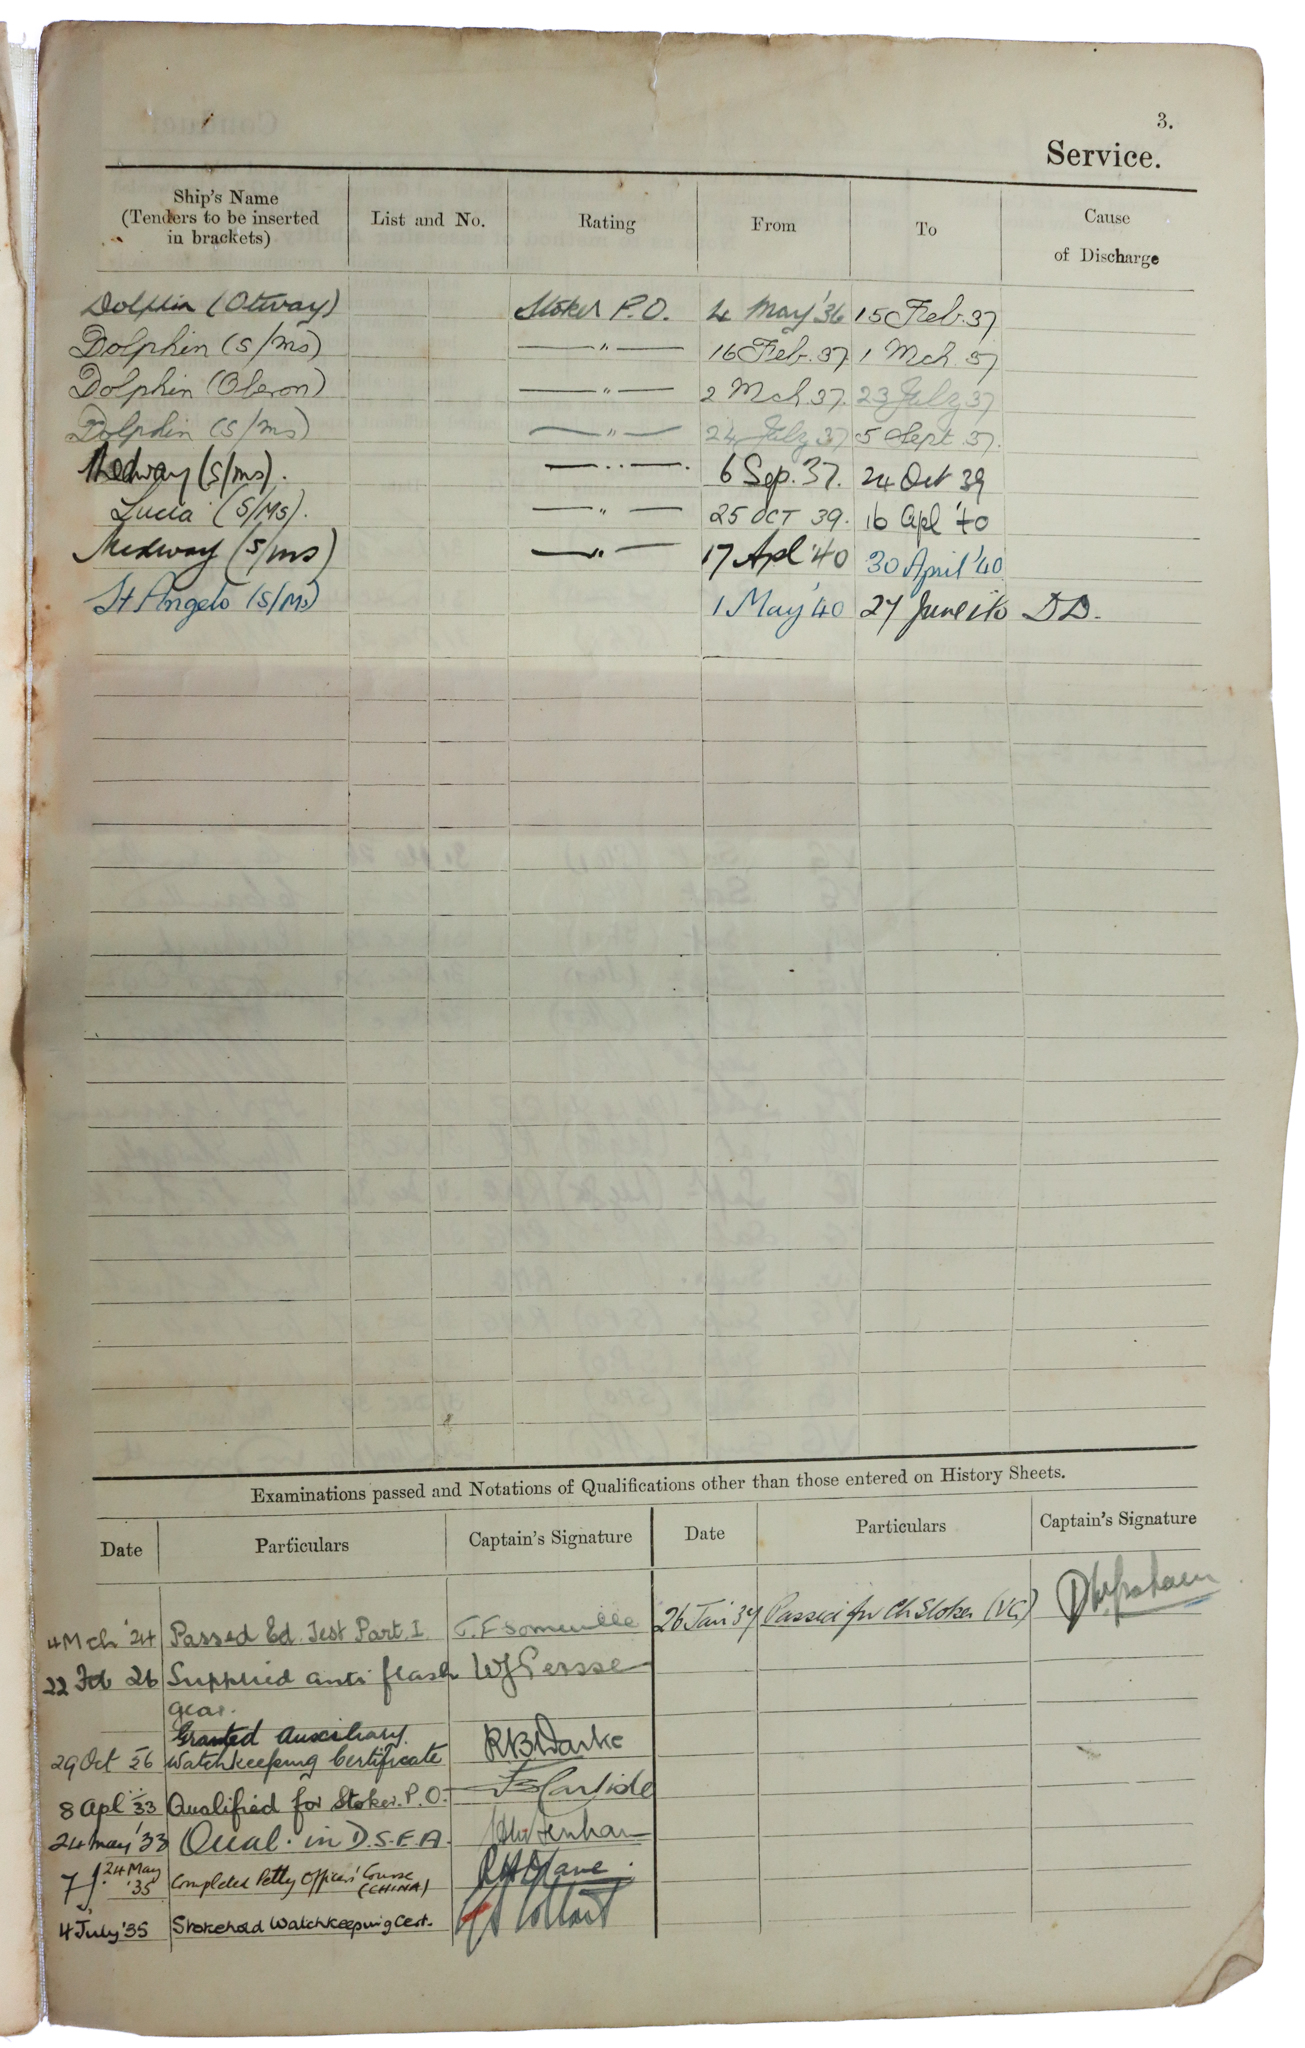 3.
Service.
Ship's Name
(Tenders to be inserted
in brackets)
List and No.
Rating
From
To
Cause
of Discharge
Dolphin (Otway) Stoker P.O. 4 May '36 15 Feb. 37
Dolphin (S/ms) — " — 16 Feb. 37 1 Mch. 37
Dolphin (Oberon) — " — 2 Mch. 37. 23 July 37
Dolphin (S/ms) — " — 24 July 37 5 Sept 37.
Medway (S/ms). — " — 6 Sep. 37. 24 Oct 39
Lucia (S/Ms). — " — 25 OCT 39. 16 Apl '40
Medway (S/ms) — " — 17 Apl '40 30 April '40
St Angelo (S/Ms) 1 May '40 27 June '40 DD.
Examinations passed and Notations of Qualifications other than those entered on History Sheets.
Date Particulars Captain's Signature Date Particulars Captain's Signature
4 Mch '24 Passed Ed. Test Part I. Somerville 26 Jan 37 Passed for Ch Stoker (VG)
22 Feb 26 Supplied anti flash
gear.
Granted Auxiliary
29 Oct 26 Watchkeeping Certificate RB Darke
8 Apl '33 Qualified for Stoker. P.O. Carlisle
24 May '33 Qual. in D.S.E.A.
7 J. 24 May '35 Completed Petty Officers' Course
(CHINA)
4 July '35 Stokehold Watchkeeping Cert.